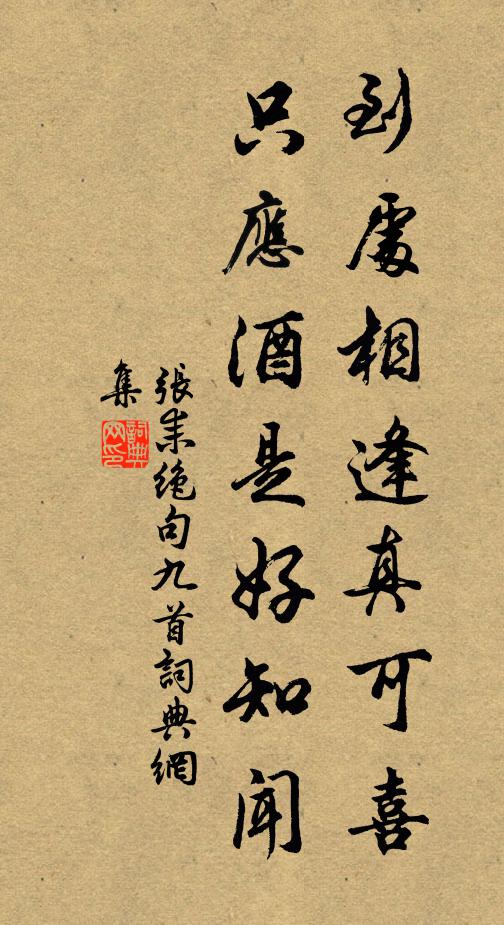 到處相逢真可喜
只應酒是好知聞
張耒絶句九首詞典網
集
詞典
网印